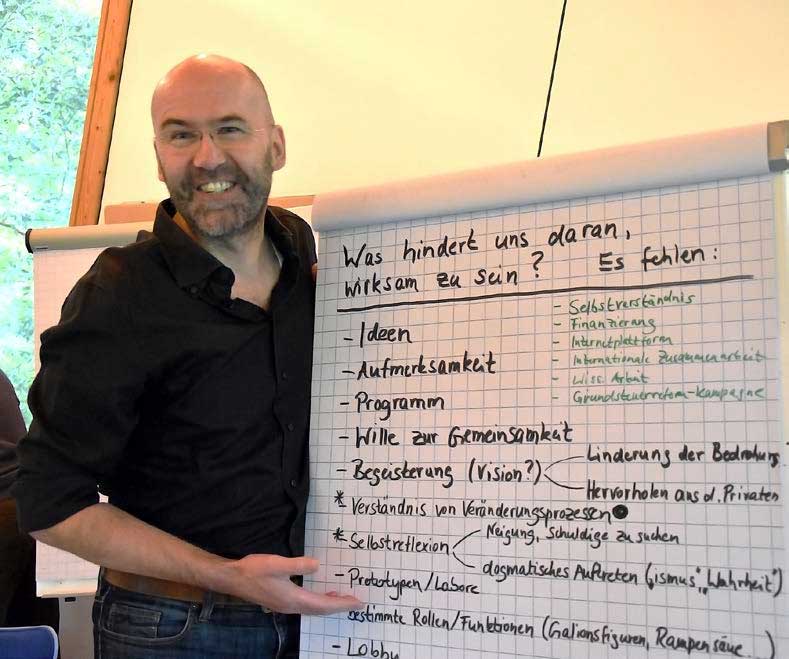 Was hindert uns daran,
wirksam zu sein? Es fehlen:
- Ideen
- Aufmerksamkeit
- Programm
- Wille zur Gemeinsamkeit
- Begeisterung (Vision?)
Linderung der Bedrohung
Hervorholen aus d. Privaten
* Verständnis von Veränderungsprozessen
* Selbstreflexion
Neigung, Schuldige zu suchen
dogmatisches Auftreten („ismus", „Wahrheit")
- Prototypen/Labore
bestimmte Rollen/Funktionen (Galionsfiguren, Rampensäue...)
- Lobby
- Selbstverständnis
- Finanzierung
- Internetplattform
- Internationale Zusammenarbeit
- Wiss. Arbeit
- Grundsteuerreform-Kampagne